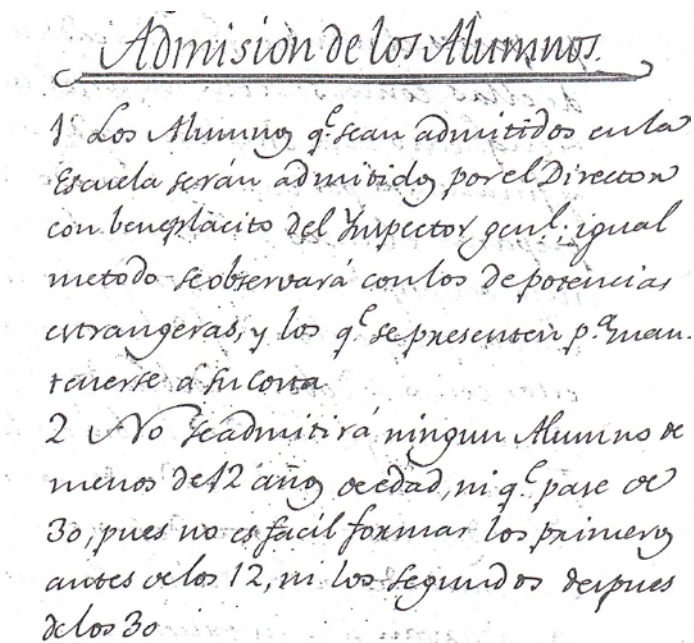 Admision de los Alumnos.
1º Los Alumnos q.e sean admitidos en la
Escuela serán admitidos por el Director
con beneplacito del Inspector gen.l; igual
metodo se observará con los de potencias
extrangeras, y los q.e se presenten p.a man-
tenerse á su costa
2 No se admitirá ningun Alumno de
menos de 12 años de edad, ni q.e pase de
30, pues no es facil formar los primeros
antes de los 12, ni los segundos despues
de los 30